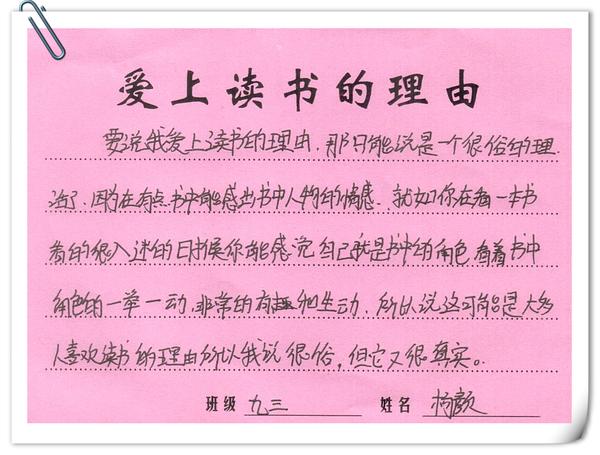 爱上读书的理由
要说我爱上读书的理由，那只能说是一个很俗的理
由了，因为在有点书中能感出书中人物的情感，就如你在看一本书
看的很入迷的时候你能感觉自己就是书中的角色，有着书中
角色的一举一动，非常的有趣和生动，所以说这可能是大多
人喜欢读书的理由所以我说很俗，但它又很真实。
班级 九三 姓名 杨颜